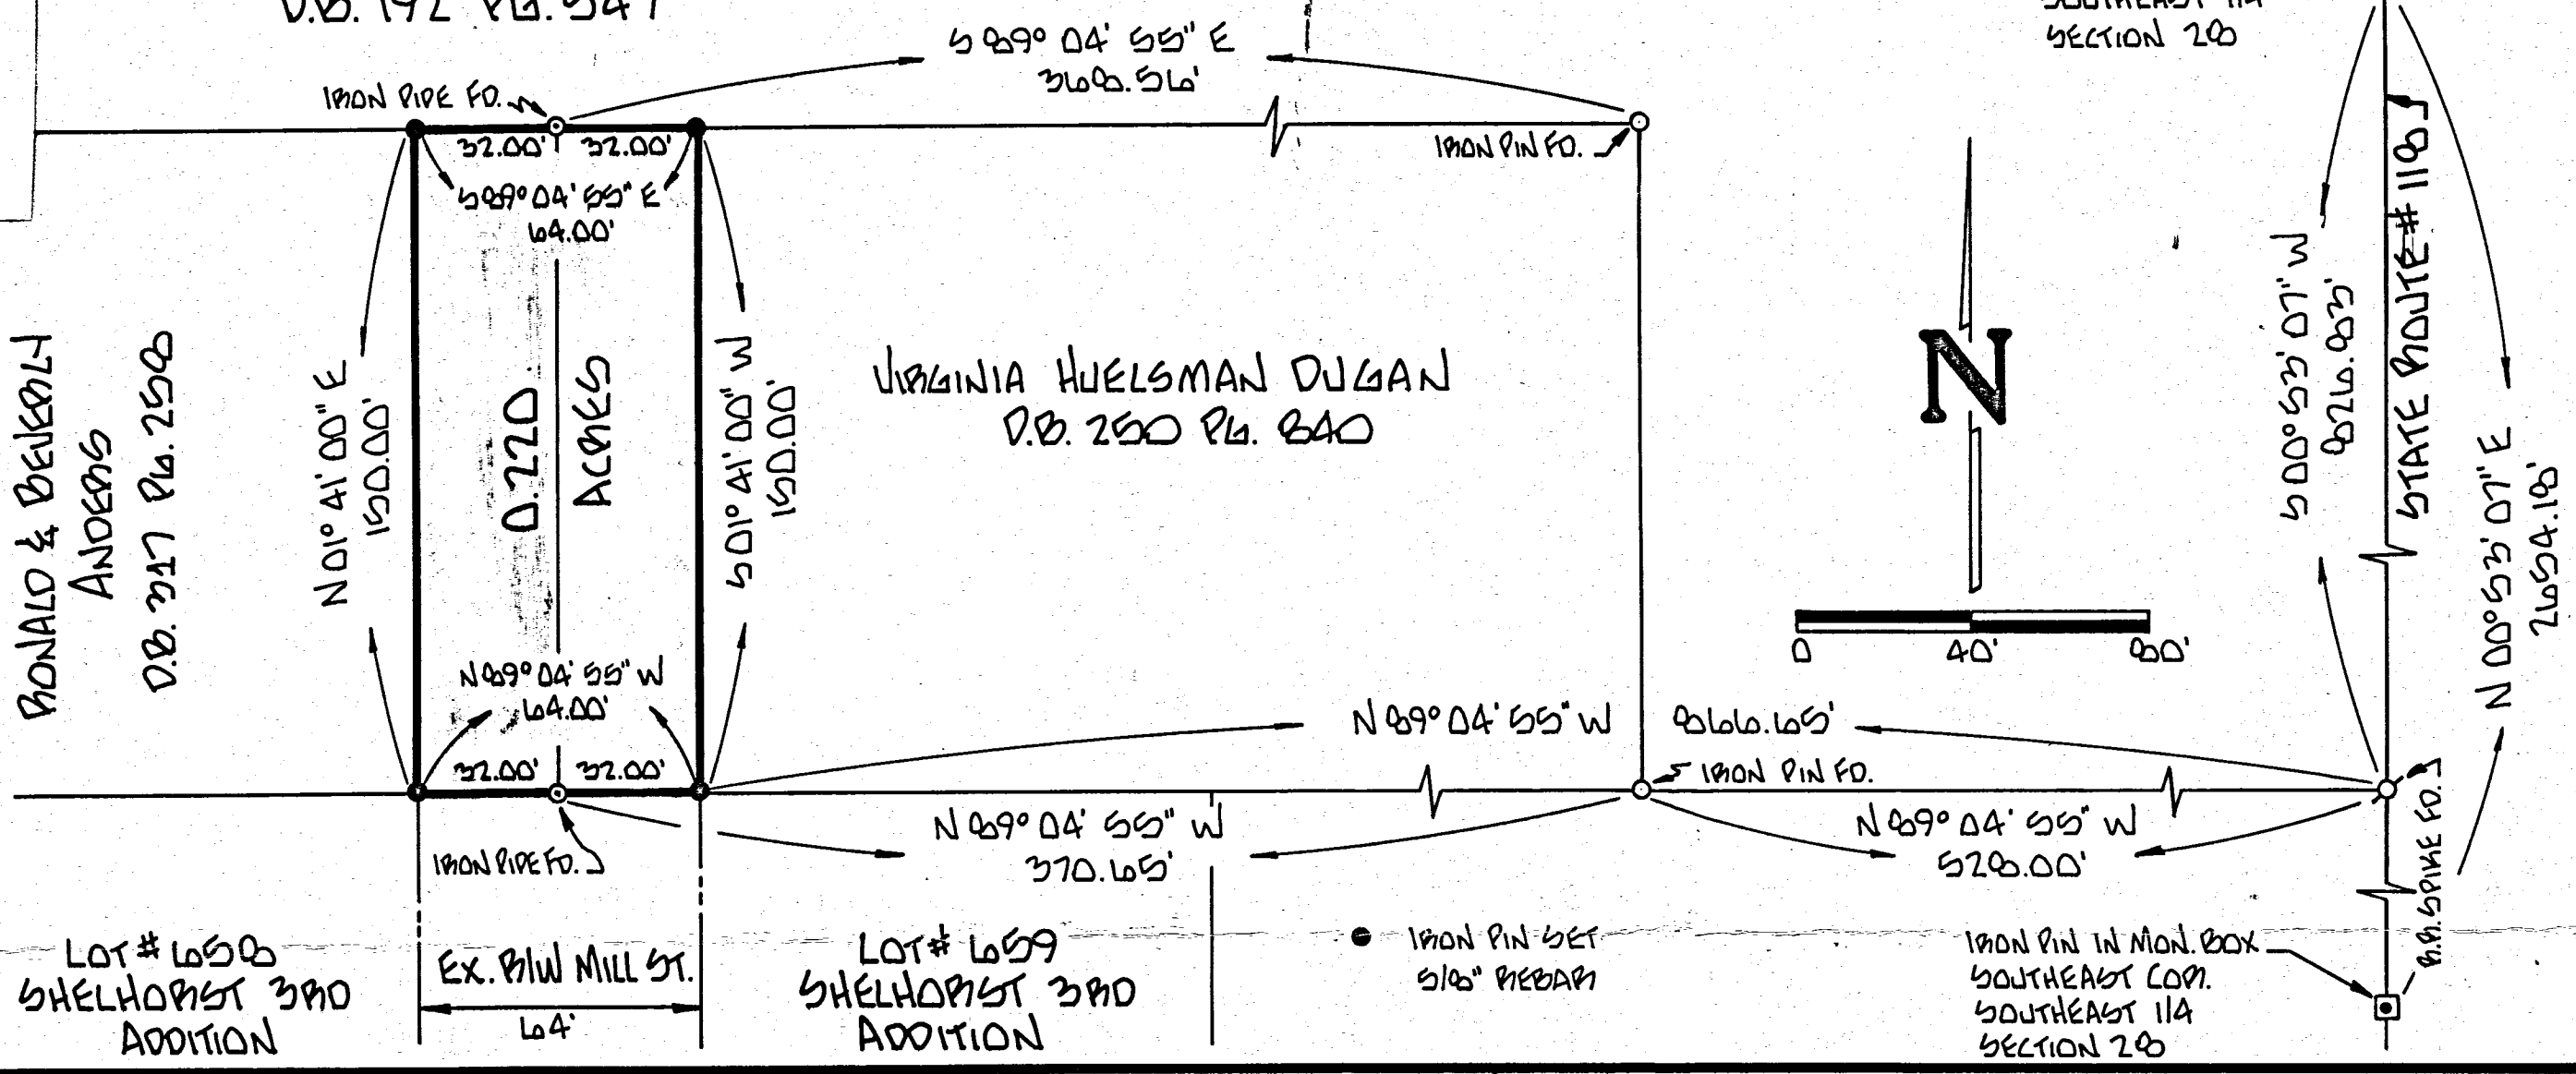 D.B. 192 PG. 547
S 89° 04' 55" E
368.56'
SOUTHEAST 1/4
SECTION 28
IRON PIPE FD.
32.00' 32.00'
S 89° 04' 55" E
64.00'
IRON PIN FD.
RONALD & BEVERLY
ANDERS
D.B. 317 PG. 258
N 01° 41' 00" E
150.00'
0.220
ACRES
S 01° 41' 00" W
150.00'
VIRGINIA HUELSMAN DUGAN
D.B. 250 PG. 840
N
0 40' 80'
S 00° 53' 07" W
826.83'
STATE ROUTE # 118
N 00° 53' 07" E
2654.18'
N 89° 04' 55" W
64.00'
32.00' 32.00'
N 89° 04' 55" W 866.65'
IRON PIN FD.
IRON PIPE FD.
N 89° 04' 55" W
370.65'
N 89° 04' 55" W
528.00'
R.R. SPIKE FD.
LOT # 658
SHELHORST 3RD
ADDITION
EX. R/W MILL ST.
64'
LOT # 659
SHELHORST 3RD
ADDITION
IRON PIN SET
5/8" REBAR
IRON PIN IN MON. BOX
SOUTHEAST COR.
SOUTHEAST 1/4
SECTION 28